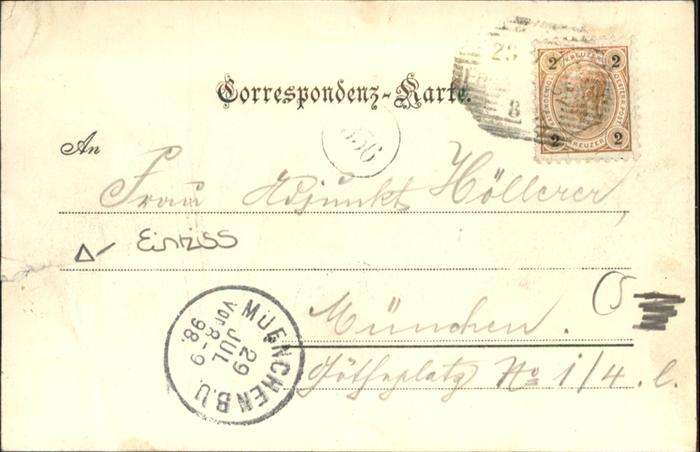 Correspondenz-Karte.
2 KREUZER 2
2 KREUZER 2
23
8
156
An
Frau Adjunkt Höllerer,
Einriss
München.
Götheplatz No 1/4. l.
MUENCHEN B.U.
29
JUL
Vor 8-9
98.